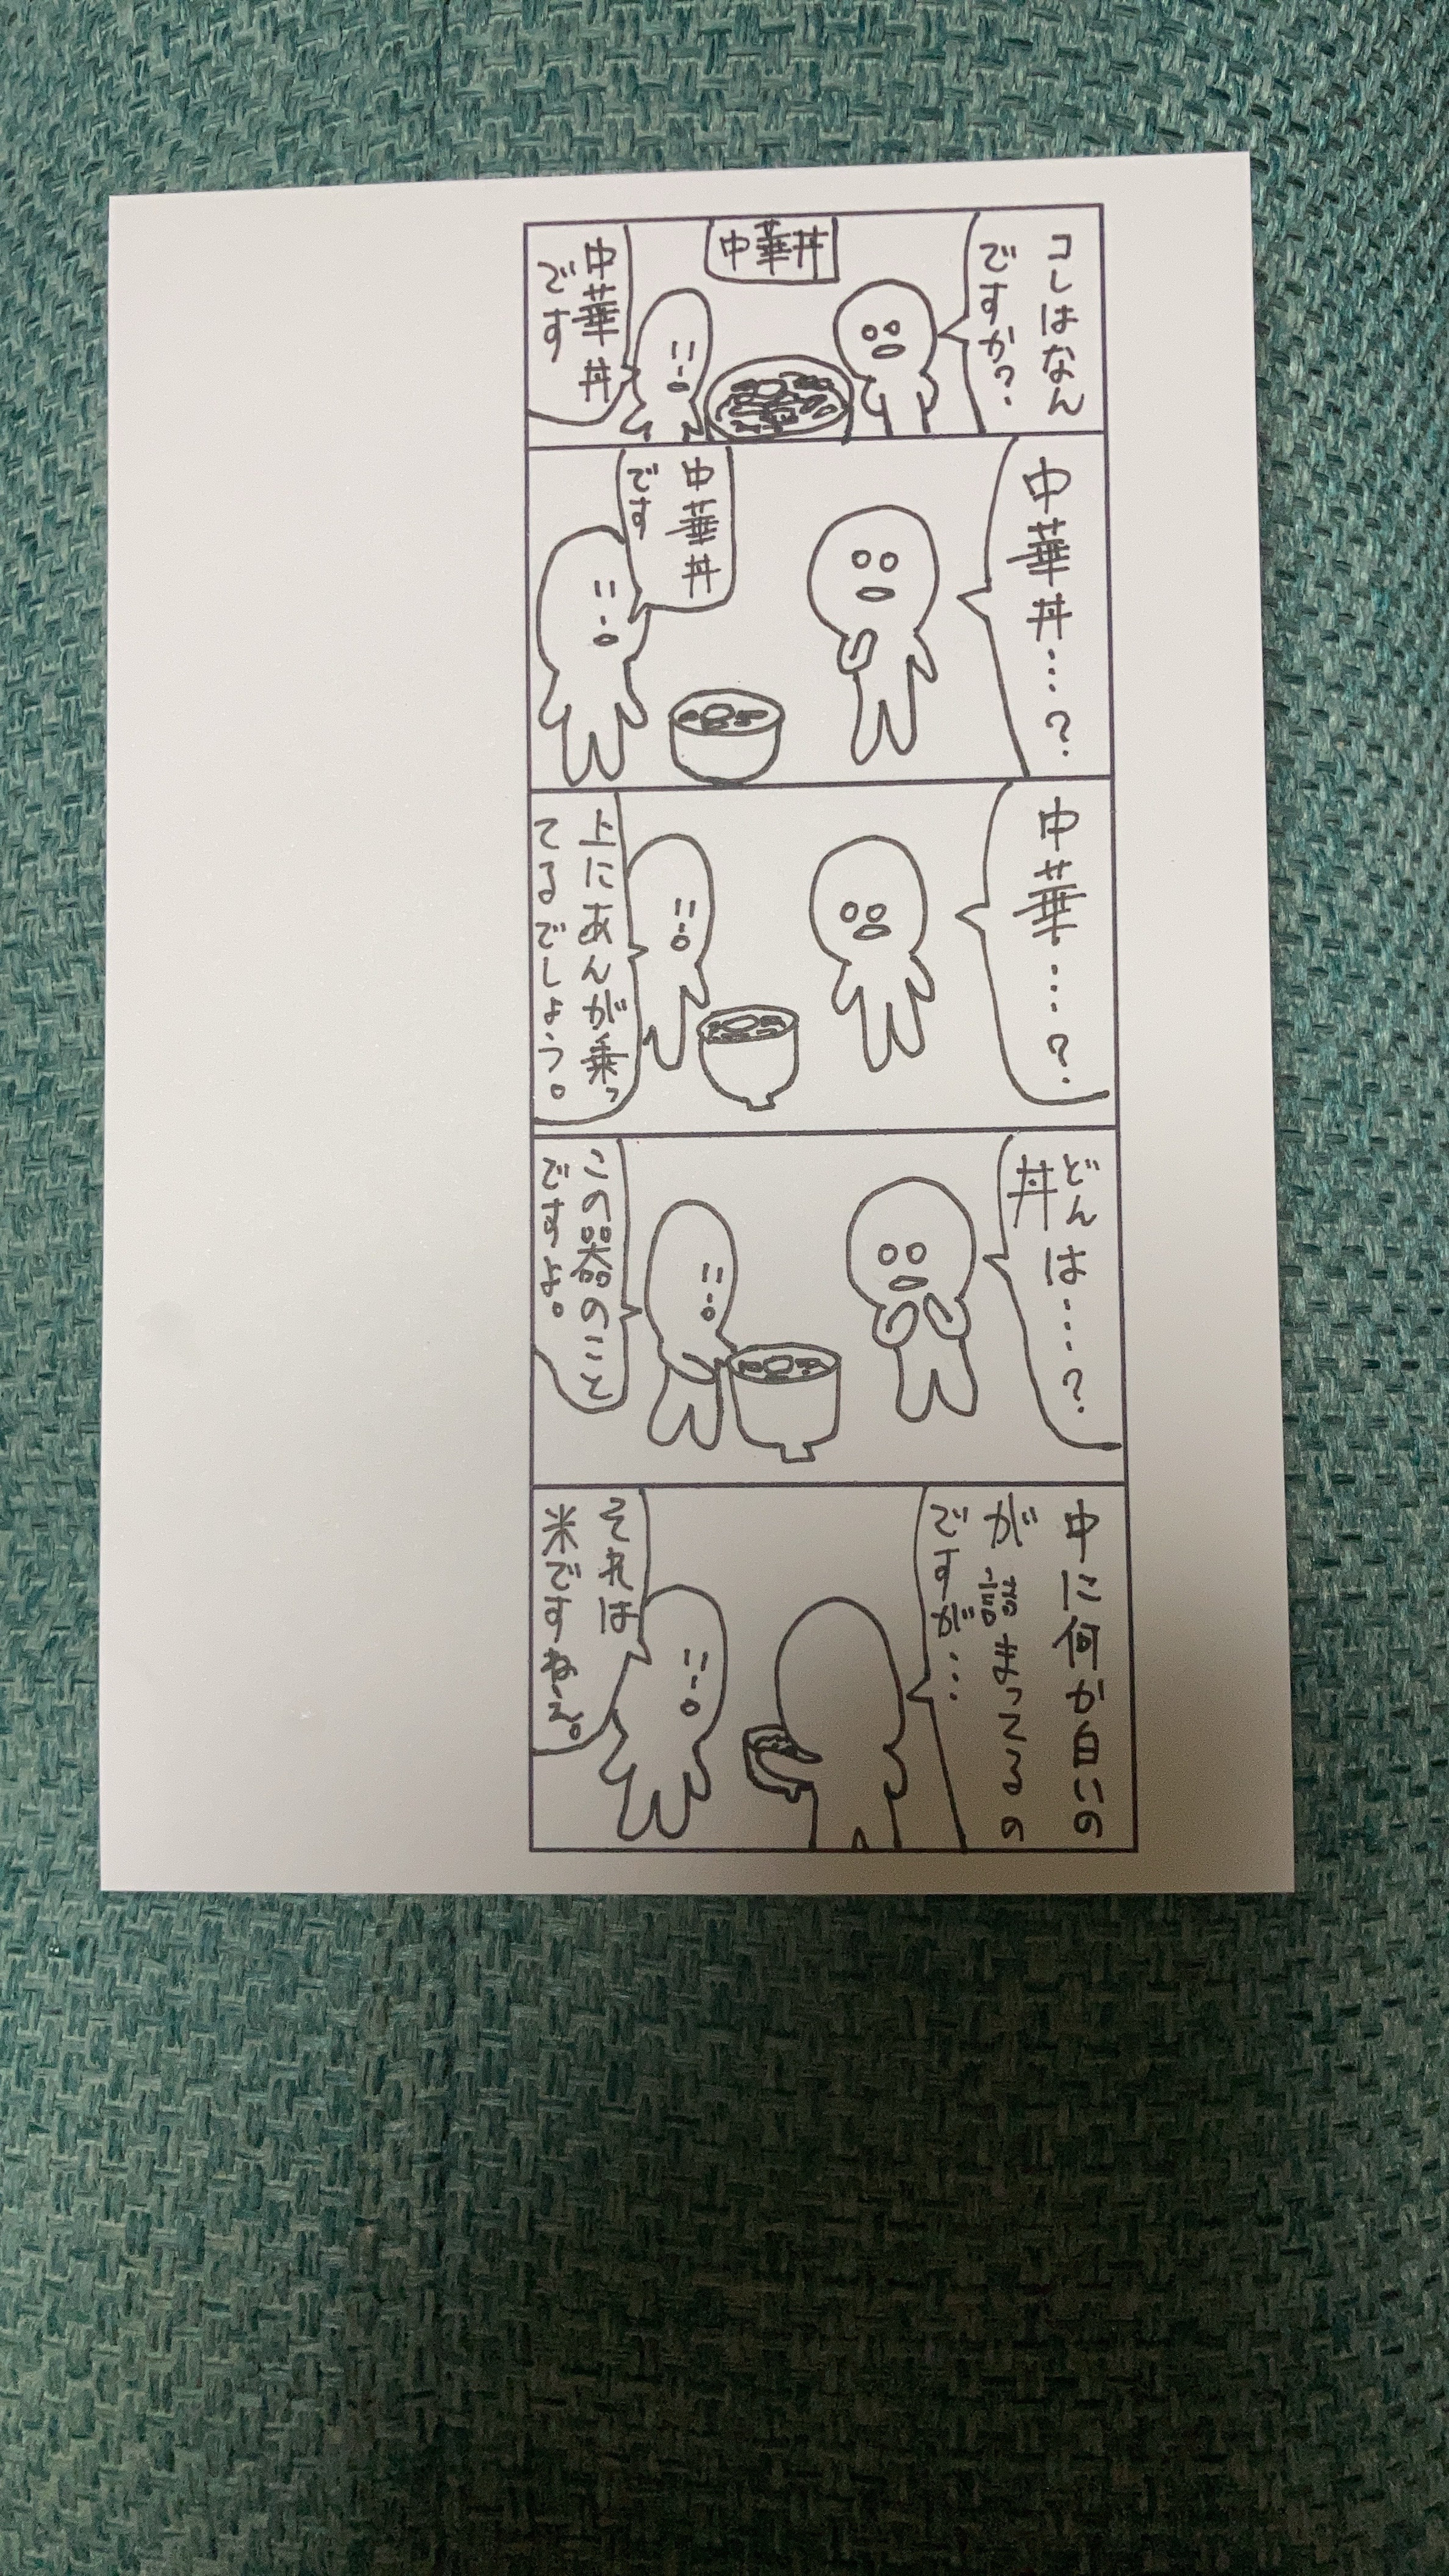 コレはなん
ですか?
中華丼
中華丼
です
中華丼…?
中華丼
です
中華…?
上にあんが乗っ
てるでしょう。
どん
丼は…?
この器のこと
ですよ。
中に何か白いの
が詰まってるの
ですが…
それは
米ですねえ。